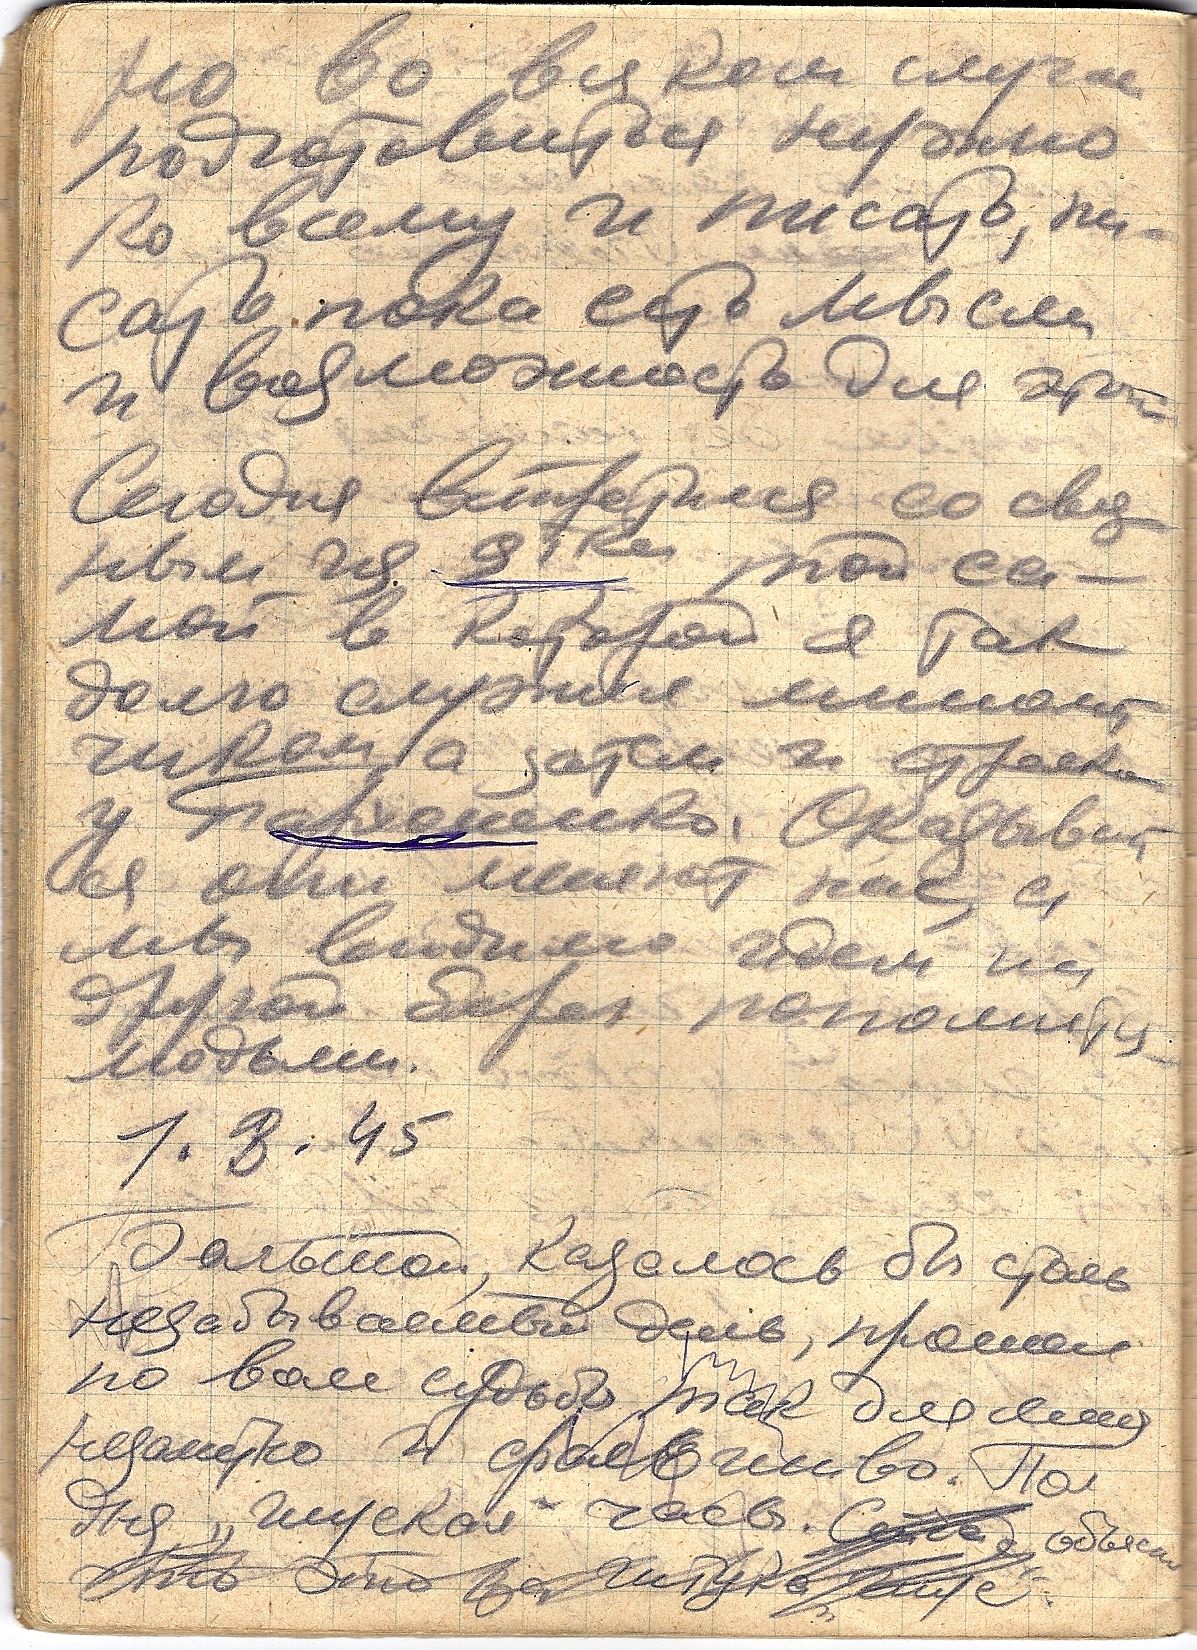 но во всяком случае
подготовиться нужно
ко всему и писать, пи-
сать пока есть мысли
и возможность для этой
Сегодня встретился со свя
ным из 9тки той са-
мой в которой я так
долго служил миномет
чиком а затем и стрелком
у Пархоменко. Оказывает
ся они меняют нас, а
мы видимо идем на
другой берег пополняться
людьми.
1.3.45
Большой, казалось бы столь
незабываемый день, прошел
по воле судьбы так для меня
незаметно и Пол
дня „пускал“ часы. объясн
что это за штука